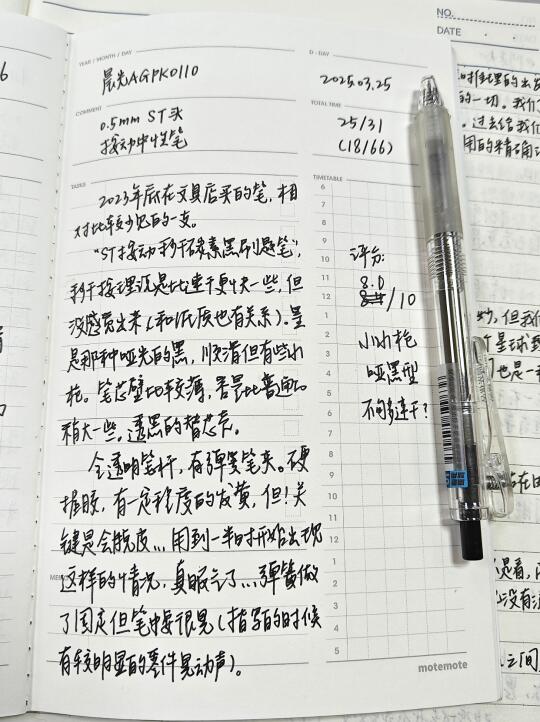 NO.
DATE
YEAR / MONTH / DAY
晨光AGPK0110
D - DAY
2025.03.25
COMMENT
0.5mm ST头
按动中性笔
TOTAL TIME
25/31
(18/66)
TASKS
2023年底在文具店买的笔,相
对比较少见的一支。
"ST按动秒干碳素黑刷题笔",
秒干按理说是比速干更快一些,但
没感觉出来(和纸质也有关系)。呈
是那种哑光的黑,顺滑但有些小
枪。笔芯壁比较薄,容量比普通的
稍大一些。透黑的替芯壳。
全透明笔杆,有弹簧笔夹。硬
握胶,有一定程度的发黄,但!关
键是会脱皮...用到一半时开始出现
这样的情况,真服气了...弹簧做
了固定但笔中按很晃(指写的时候
有较明显的零件晃动声)。
TIMETABLE
6
7
8
9
10
11
12
1
2
3
4
5
6
7
8
9
10
11
12
1
2
3
4
5
评分:
8.0
/10
小小枪
哑黑型
不够速干?
MEMO
motemote
的一切。我们
。过去给我们
用的精确